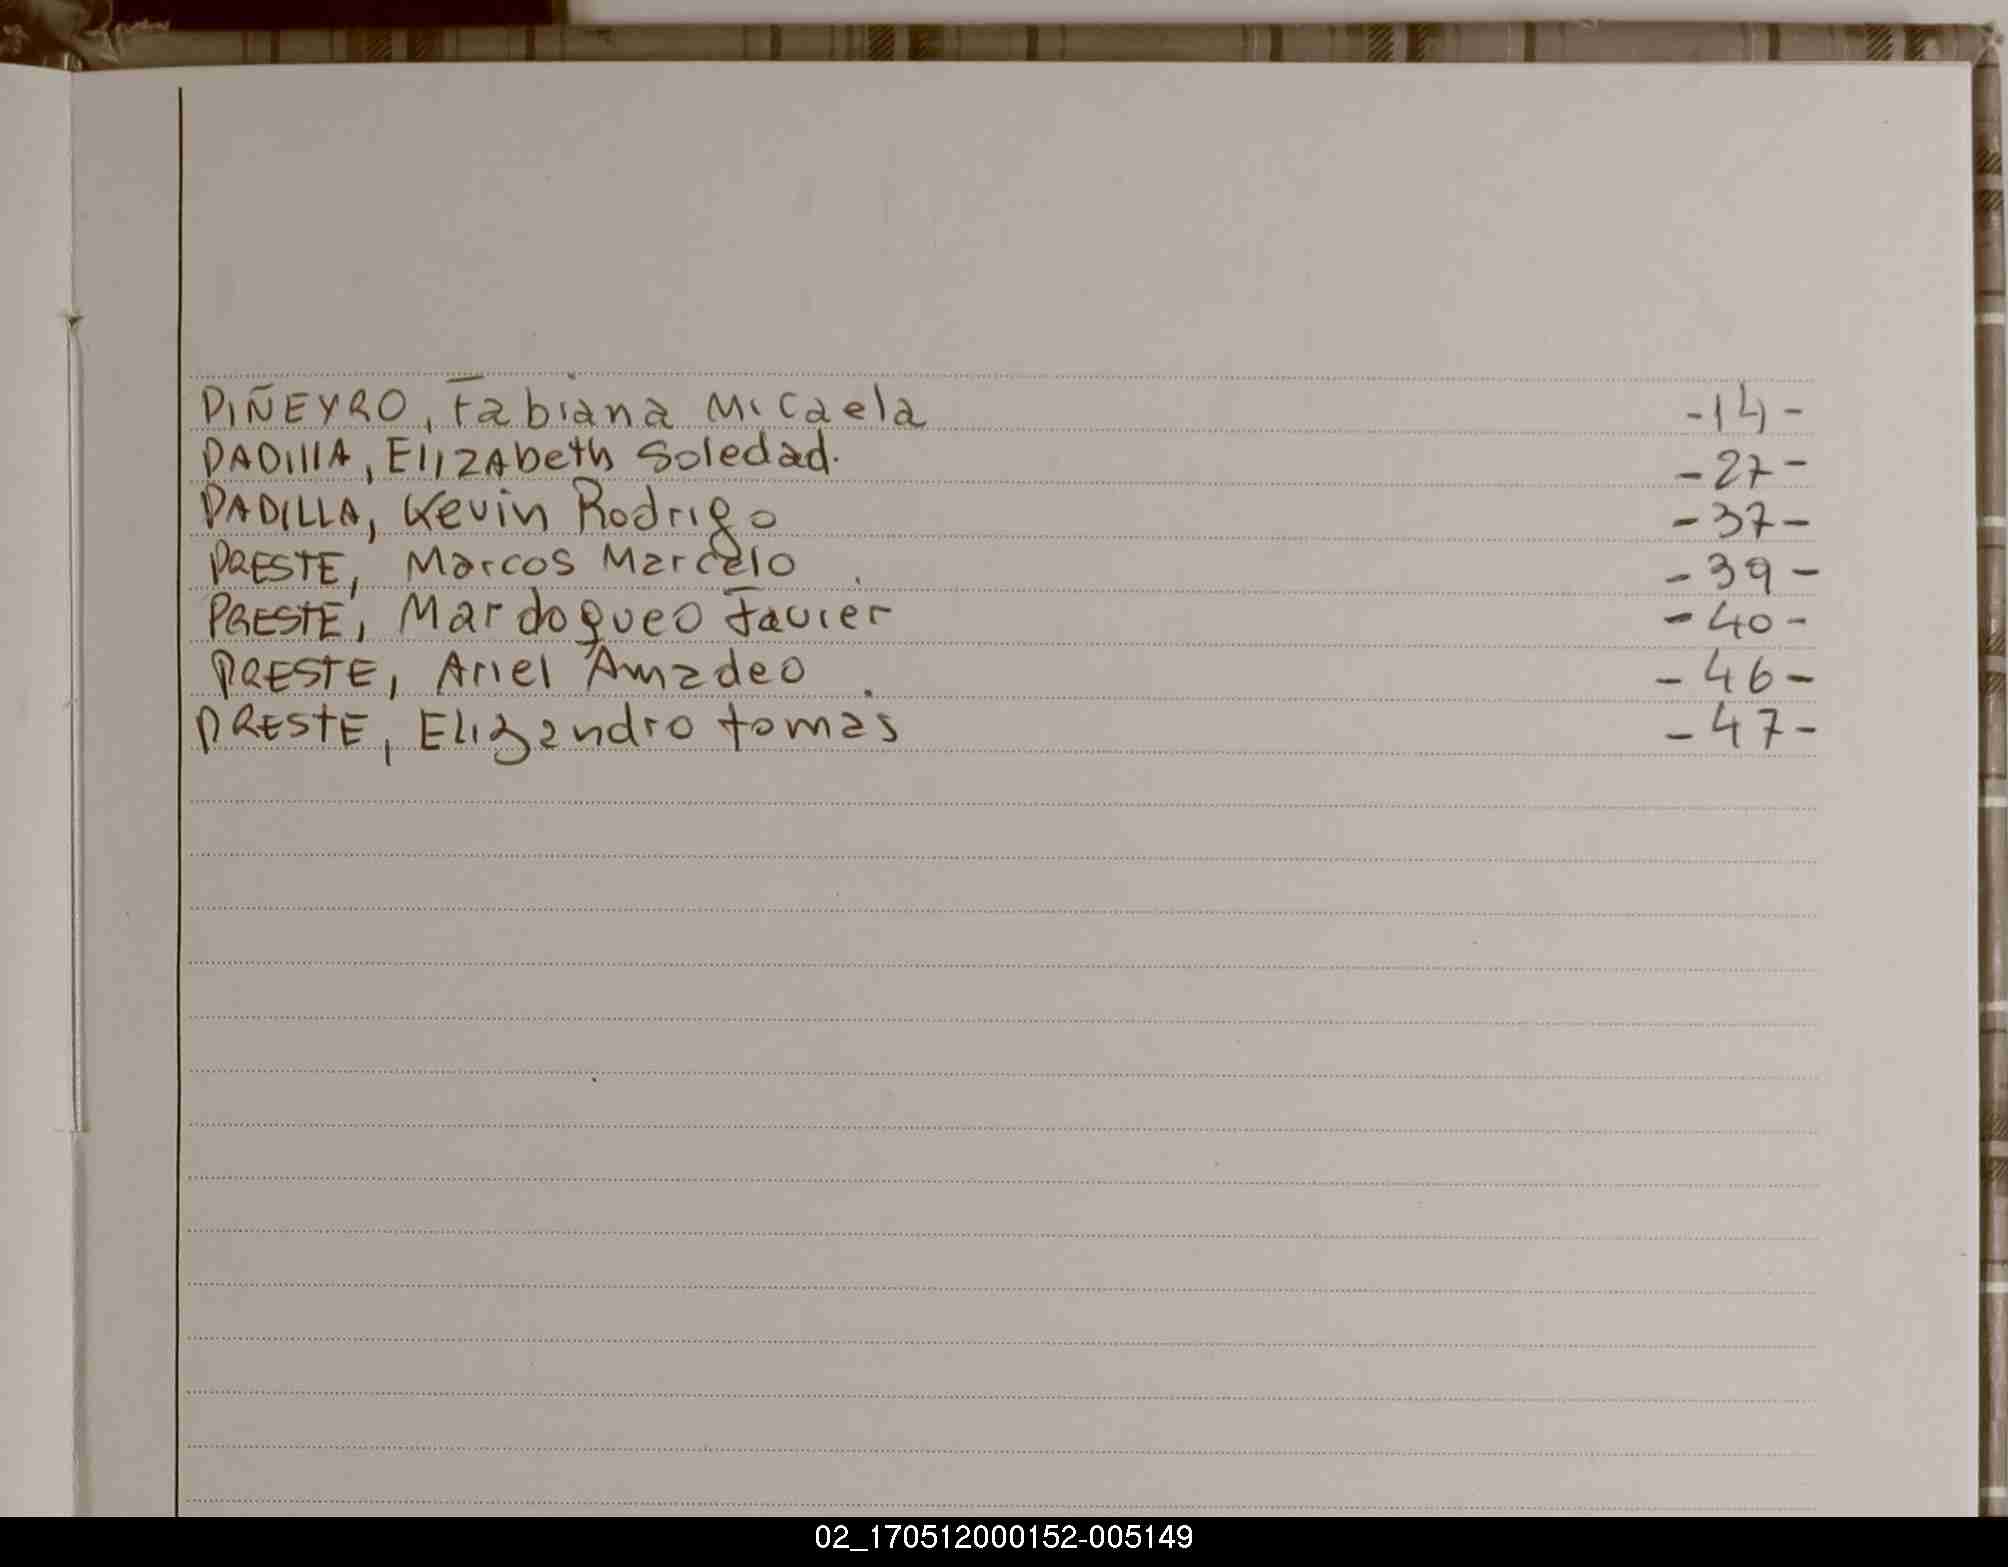 PIÑEYRO, Fabiana Micaela -14-
PADIllA, ElizAbeth Soledad. -27-
PADILLA, Kevin Rodrigo -37-
PRESTE, Marcos Marcelo -39-
PRESTE, Mardoqueo Javier -40-
PRESTE, Ariel Amadeo -46-
PRESTE, Elizandro tomas -47-
02_170512000152-005149